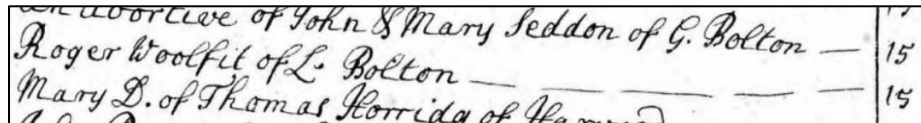 An abortive of John & Mary Seddon of G. Bolton — 15
Roger Woolfit of L. Bolton — — — — — 15
Mary D. of Thomas Horridg of